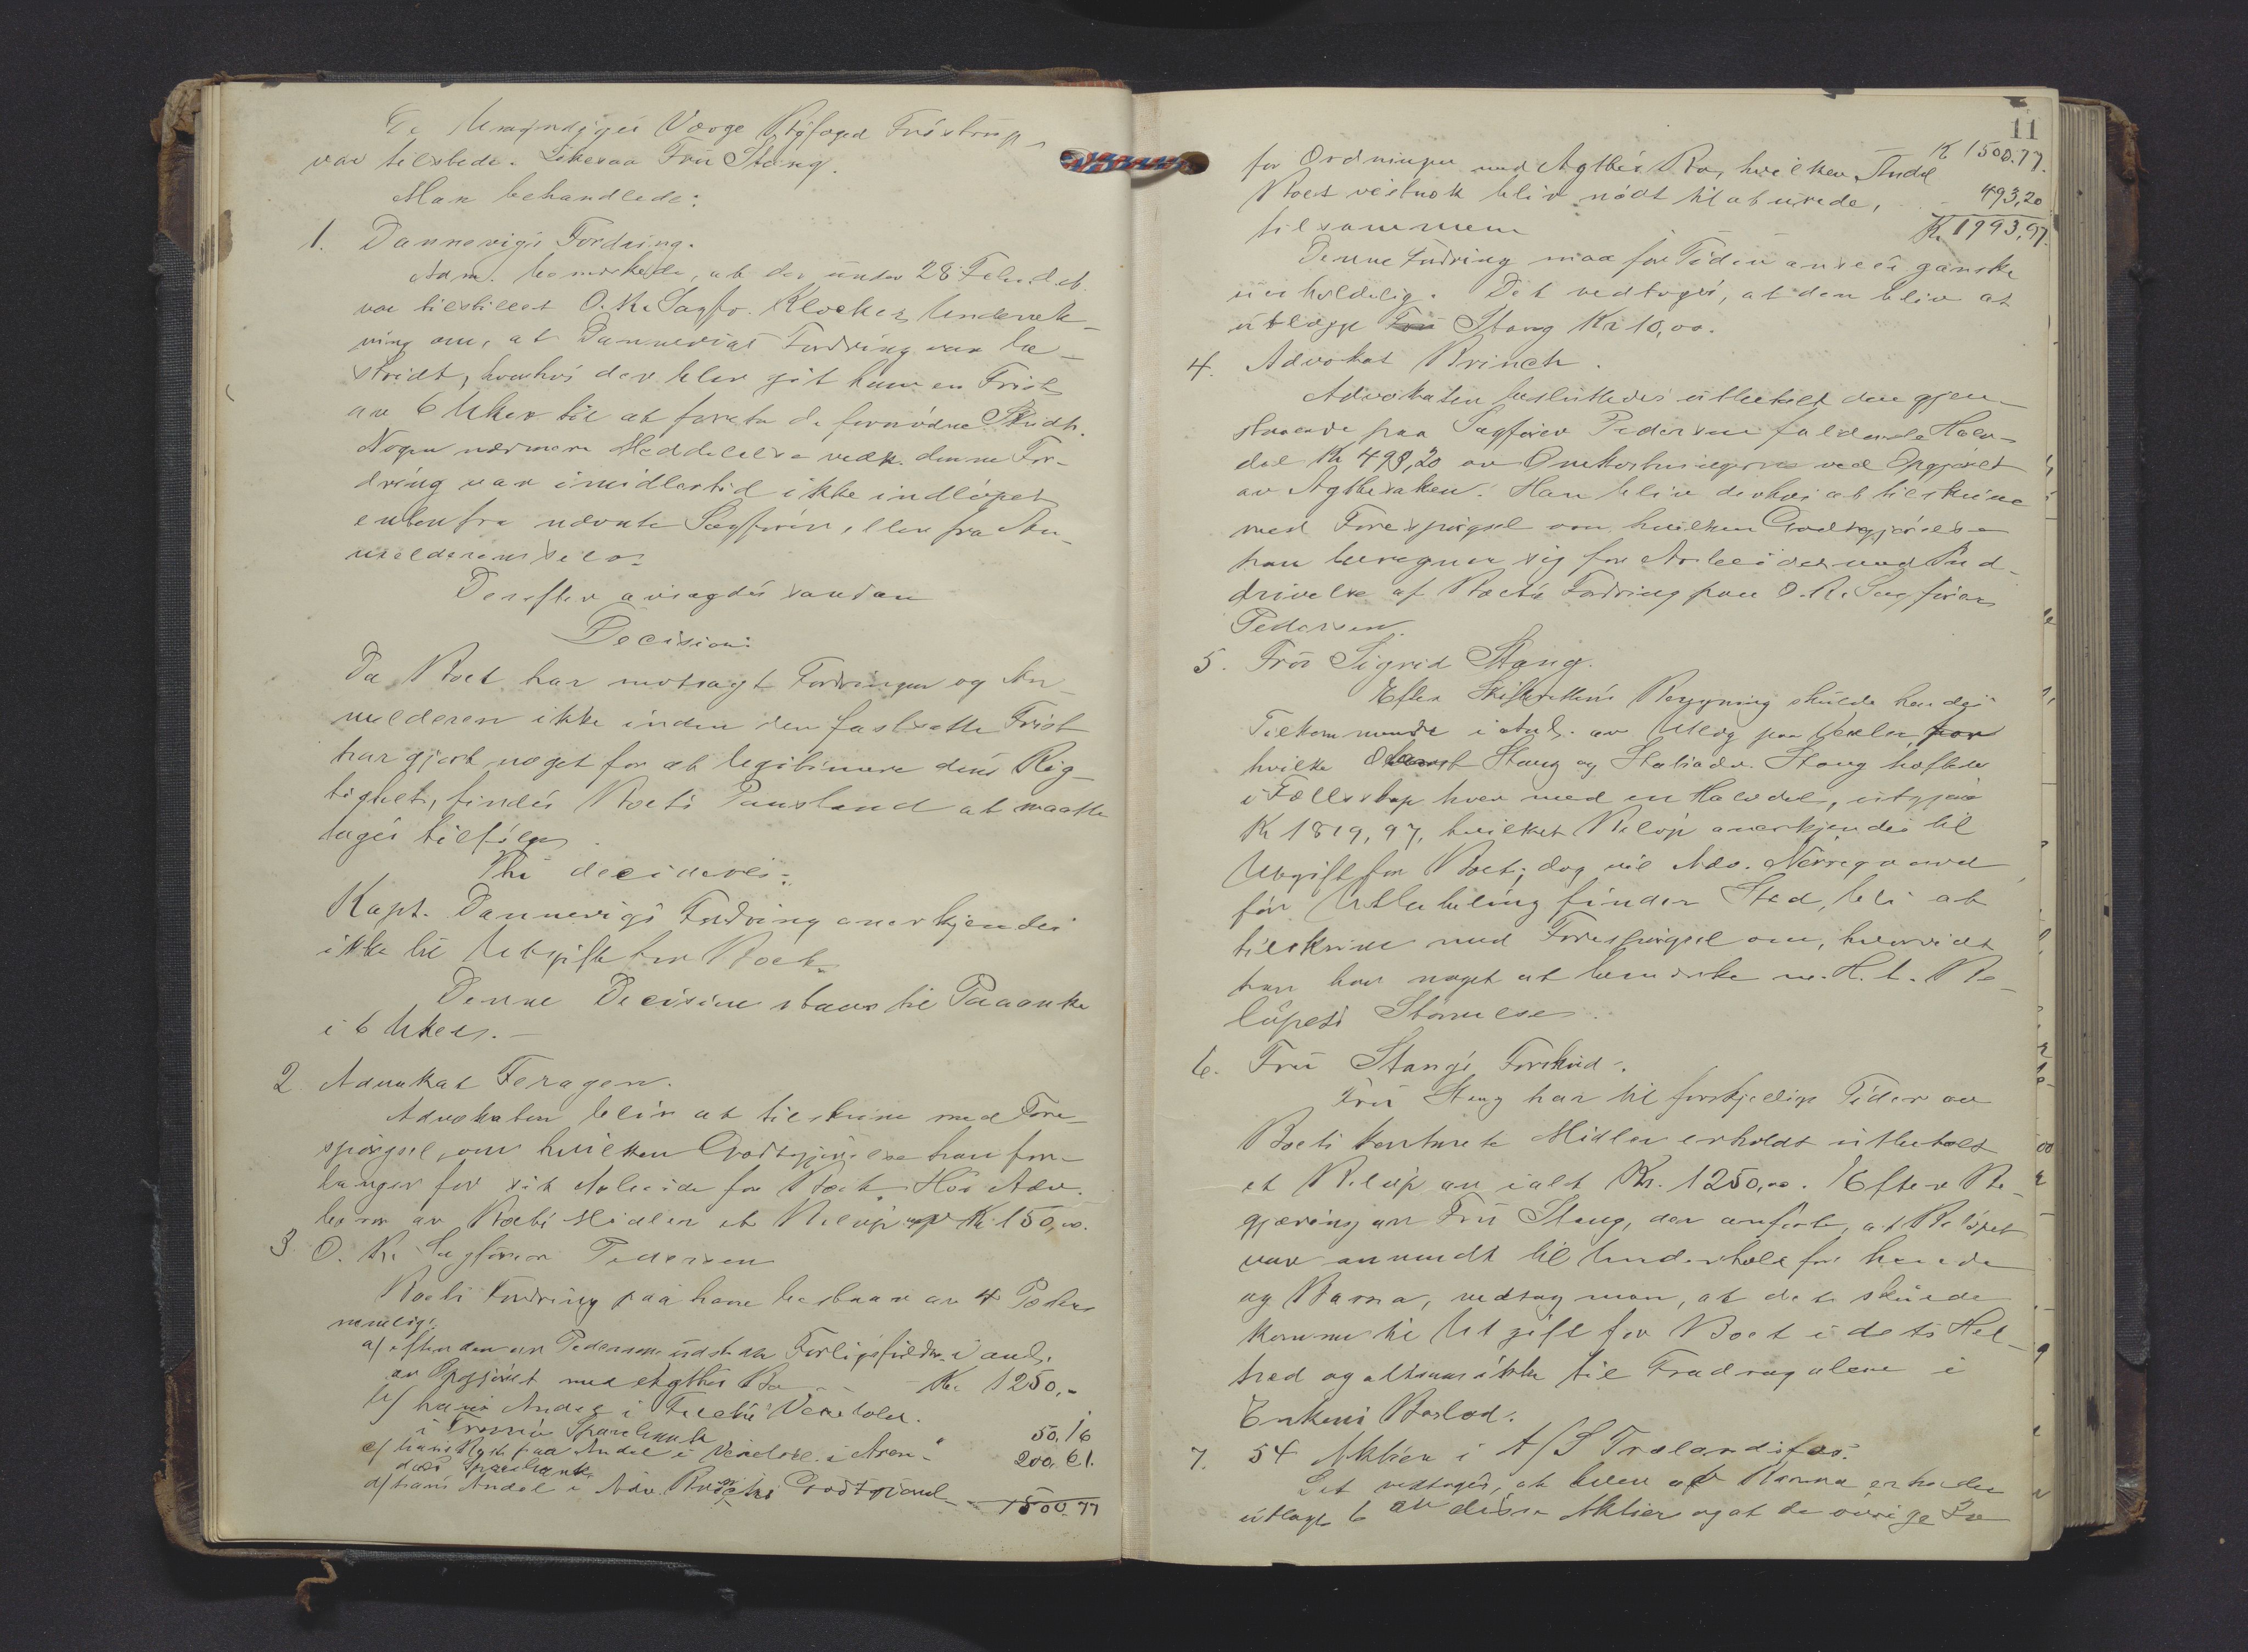 De Umyndiges Værge Byfoged Fristrup
var tilstede. Likesaa Fru Stang.
Man behandlede:
1. Dannevigs Fordring.
Adm. bemerkede, at der under 28 Febr. d.A.
var tilstillet O.R. Sagfr. Klocker Underret-
ning om, at Dannevigs Fordring var be-
stridt, hvorhos der blev git ham en Frist
av 6 Uker til at foreta de fornødne Skridt.
Nogen nærmere Meddelelse vedk. denne For-
dring var imidlertid ikke indløpet
enten fra nævnte Sagfører, eller fra An-
melderen selv.
Derefter avsagdes saadan
Decision:
Da Boet har motsagt Fordringen og An-
melderen ikke inden den fastsatte Frist
har gjort noget for at legitimere dens Rig-
tighet, findes Boets Paastand at maatte
tages tilfølge
Thi decideres:
Kapt. Dannevigs Fordring anerkjendes
ikke til Utgift for Boet.
Denne Decision staar til Paaanke
i 6 Uker. -
2 Advokat Feragen.
Advokaten blir at tilskrive med Fore-
spørgsel, om hvilken Godtgjørelse han for-
langer for sit Arbeide for Boet. Hos Adv.
bero av Boets Midler et Beløp Kr. 150,00.
3 O. R. Sagfører Pedersen
Boets Fordring paa ham bestaar av 4 Poster
nemlig:
a) efter den av Pedersen udst. Forligs i anl.
av Opgjøret med Agthes Bo - - Kr. 1250.-
b) hans Andel i
i Tromø Sparebank " 50.16
c) hans paa Andel i i Aren-
dals Sparebank 200.61.
d) hans Andel i Adv. Godtgjørel-
1500.77
11
Kr 1500.77.
for Ordningen med Agthes Bo, hvilken Andel
Boet vistnok blir nødt til at utrede, - 493,20
tilsammen Kr 1993,97.
Denne Fordring maa for Tiden ansees ganske
uerholdelig. Det vedtoges, at den blir at
utlægge Fru Stang Kr 10,00.
4. Advokat Brinch.
Advokaten besluttedes utbetalt den gjen-
staaende paa Sagfører Pedersen faldende Halv-
del Kr 493,20 av Omkostningerne ved Opgjøret
av Agthesaken. Han blir derhos at tilskrive
med Forespørgsel om hvilken Godtgjørelse
han beregner sig for Arbeidet med Ind-
drivelse af Boets Fordring paa O.R. Sagfører
Pedersen.
5. Fru Sigrid Stang.
Efter Skifterettens Beregning skulde hendes
Tilkommende i Anl. av Utlæg paa Veksler, for
hvilke Stang og Stang heftede
i Fællesskap hver med en Halvdel, utgjøre
Kr 1819,97, hvilket Beløp anerkjendes til
Utgift for Boet; dog vil Adv. Nørregaard
før Utbetaling finder Sted, bli at
tilskrive med Forespørgsel om, hvorvidt
han har noget at bemerke m. H. t. Be-
løpets Størrelse.
6. Fru Stangs Forskud.
Fru Stang har til forskjellige Tider av
Boets kontante Midler erholdt utbetalt
et Beløp av ialt Kr. 1250,00. Efter Be-
gjæring av Fru Stang, der anførte, at Beløpet
var anvendt til Underhold for hende
og Barna, vedtog man, at det skulde
komme til Utgift for Boet i dets Hel-
hed og altsaa ikke til Fradrag alene i
Enkens Boslod.
7. 54 Aktier i A/S Trælandsfos.
Det vedtoges, at hver af Barna erholder
utlagt 6 av disse Aktier og at de øvrige